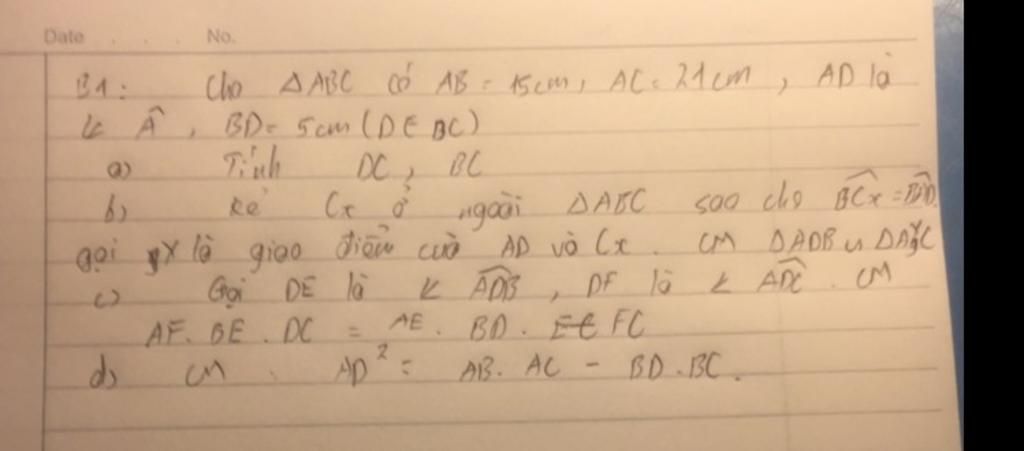 Date . . . No.
B1: Cho ΔABC có AB = 15cm, AC = 21cm, AD là
∠ Â, BD = 5cm (D ∈ BC)
a) Tính DC, BC
b) kẻ Cx ở ngoài ΔABC sao cho BCx =
gọi X là giao điểm của AD và Cx. CM ΔADB ∽
c) Gọi DE là ∠ ADB, DF là ∠ ADC. CM
AF. BE. DC = AE. BD. FC
d) CM. AD² = AB. AC - BD.BC.